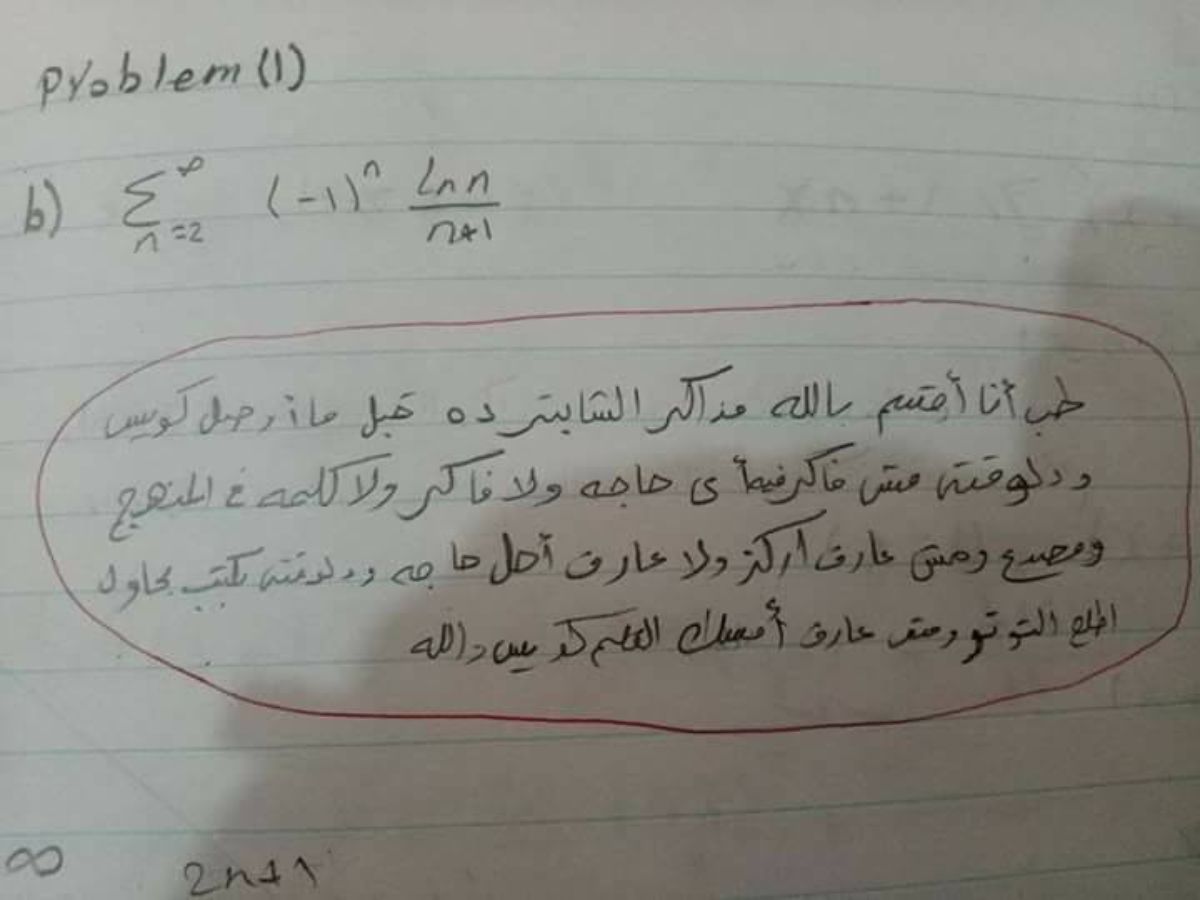 Problem (1)
b) ∑_{n=2}^{∞} (-1)^n \frac{Ln n}{n+1}
طب أنا أقسم بالله مذاكر الشابتر ده قبل ما أوصل كويس
ودلوقتى مش فاكر فيه أى حاجه ولا فاكر ولا كلمه فى المنهج
ومصدع ومش عارف أركز ولا عارف أحل حاجه ودلوقتى بكتب بحاول
اطلع التوتو ومش عارف أمسك القلم كويس والله
∞ 2n+1